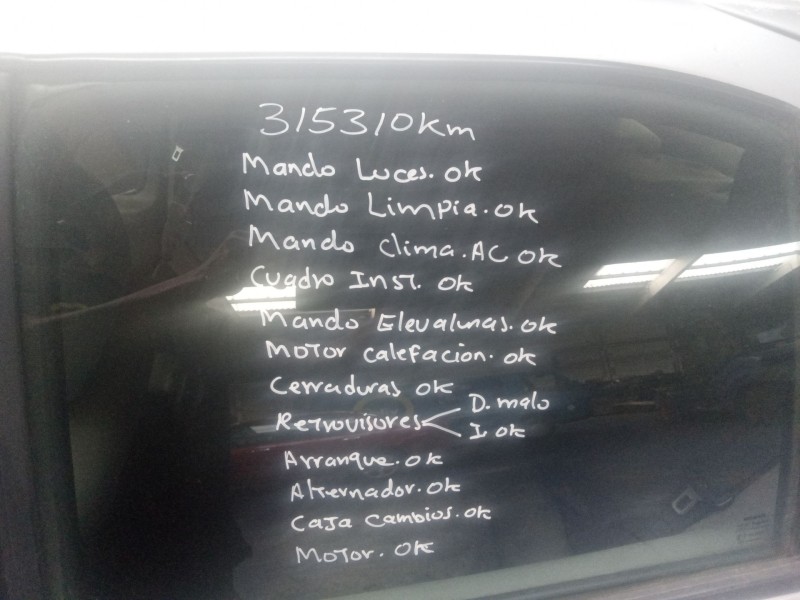 315310Km
Mando Luces. ok
Mando Limpia. ok
Mando clima. AC ok
Cuadro Inst. ok
Mando Elevalunas. ok
Motor calefacion. ok
Cerraduras ok
Retrovisores D. malo
I. ok
Arranque. ok
Alternador. ok
Caja cambios. ok
Motor. ok